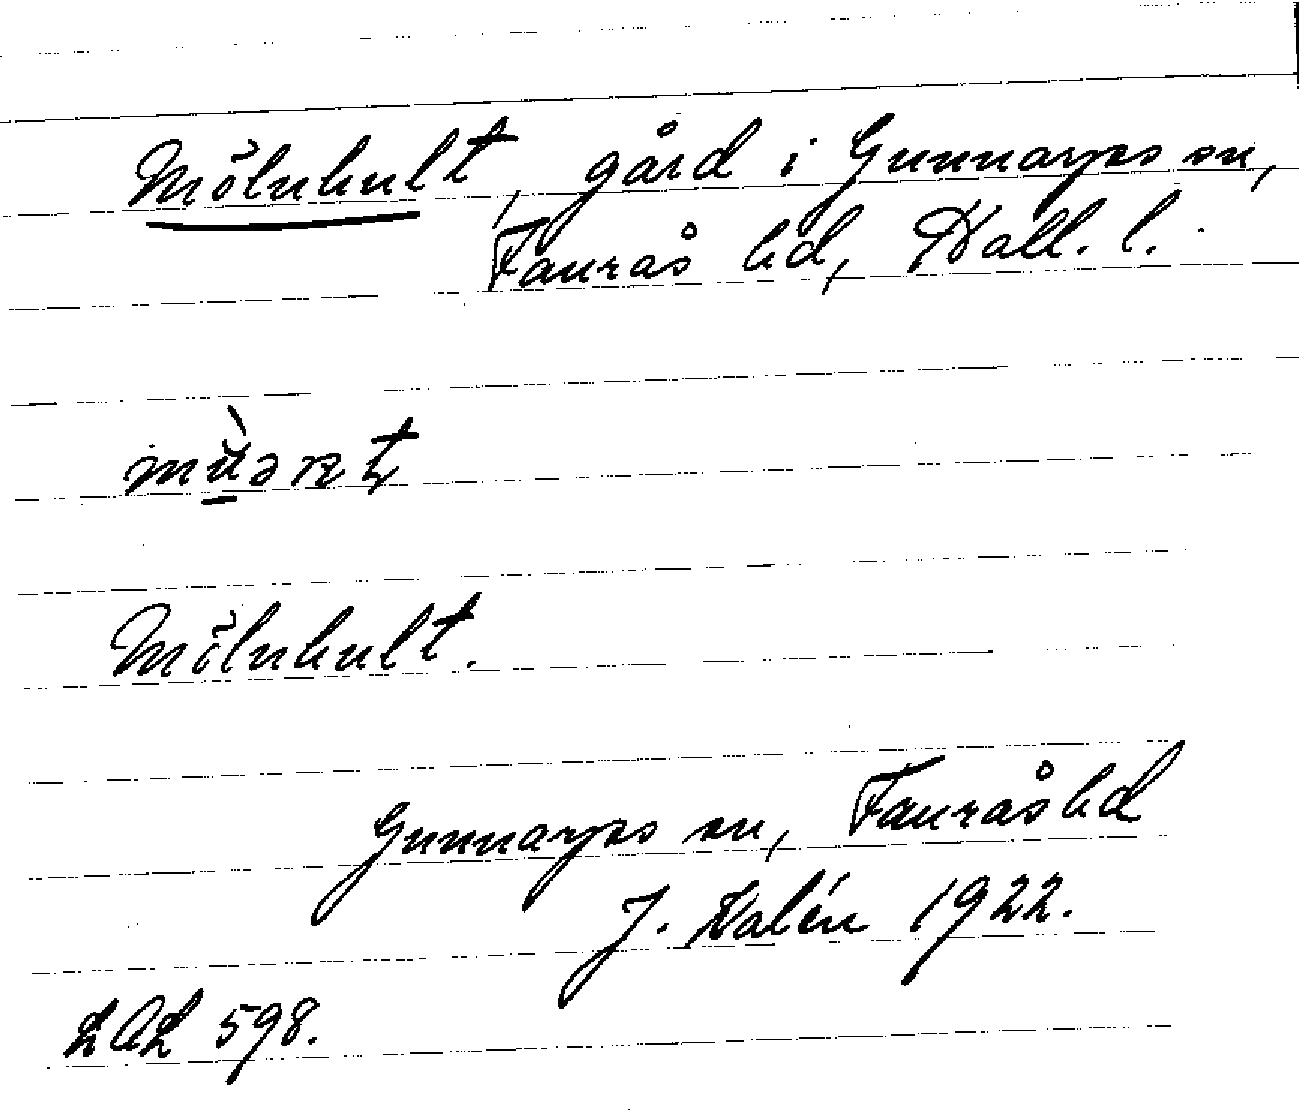 Mölnhult, gård i Gunnarps sn,
Faurås hd, Hall. l.
Mölnhult.
Gunnarps sn, Faurås hd
J. Kalén 1922.
LAL 598.